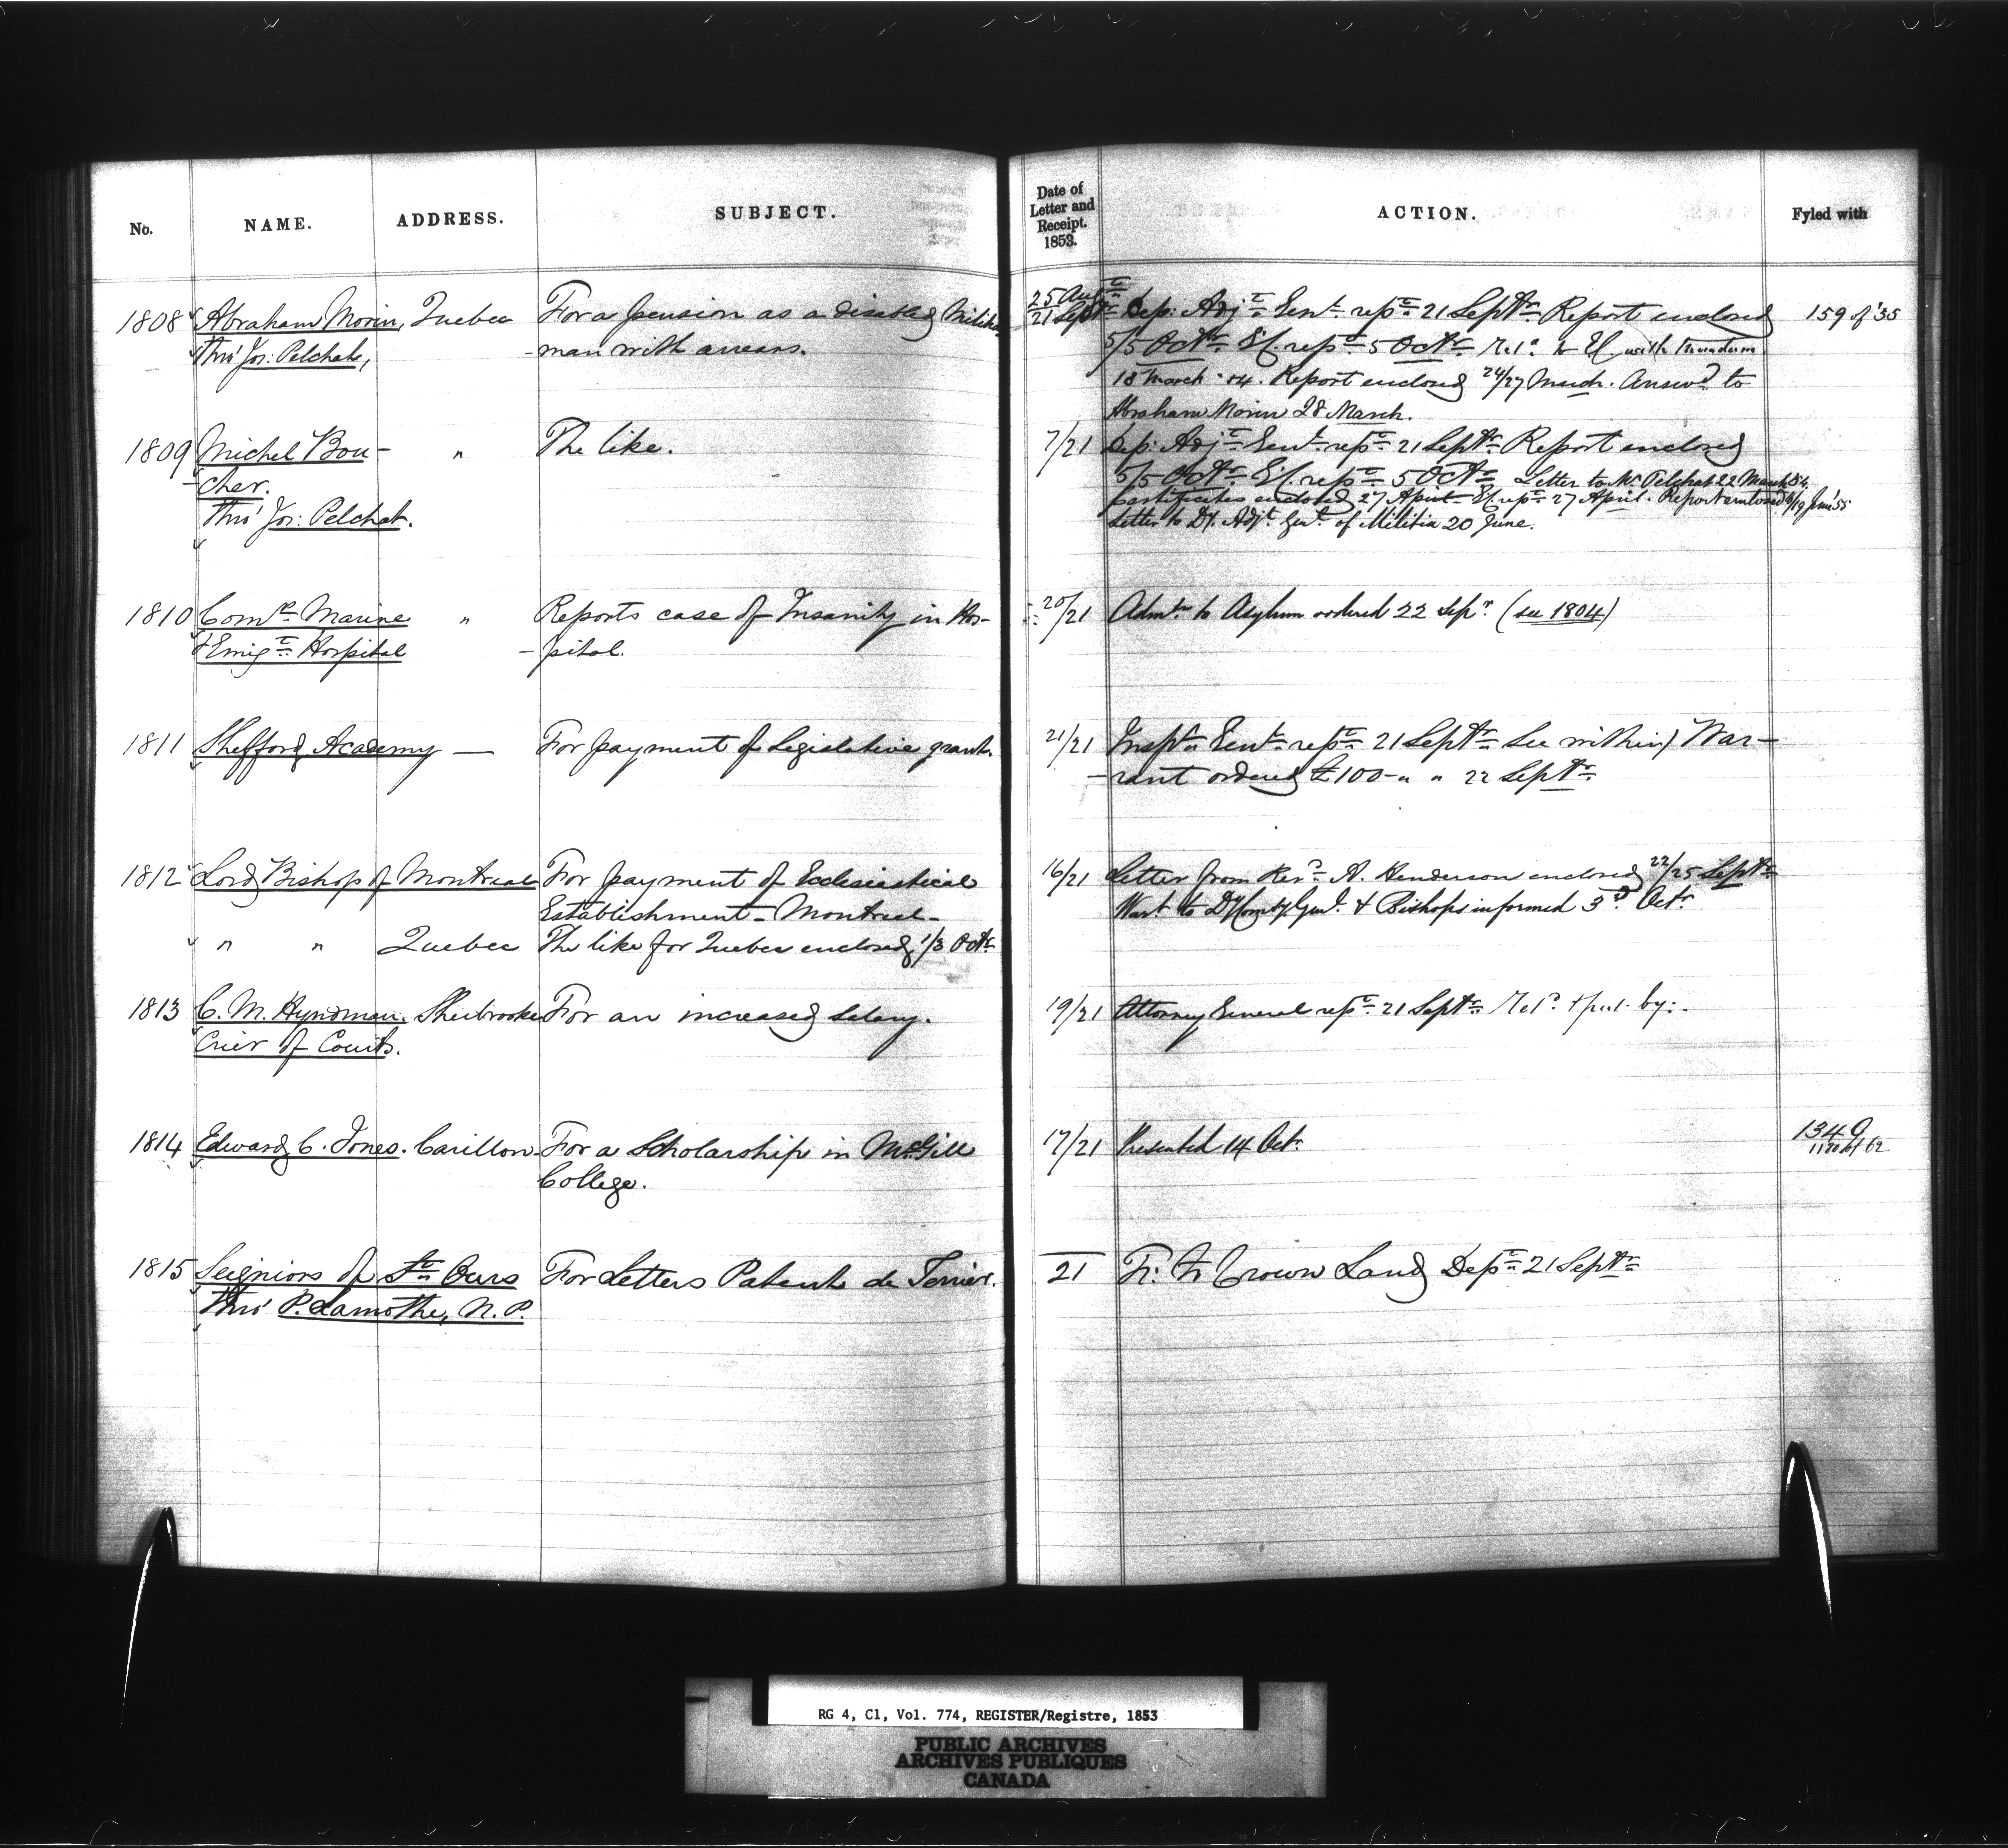 No. NAME. ADDRESS. SUBJECT.
1808 Abraham Morin, Quebec For a pension as a disabled Militia
thro' Jos: Pelchat, -man with arrears.
1809 Michel Bou- " The like.
-cher.
Thro' Jos: Pelchat.
1810 Comrs Marine " Reports case of Insanity in Hos-
& Emigt Hospital -pital.
1811 Shefford Academy — For payment of Legislative grant.
1812 Lord Bishop of Montreal For payment of Ecclesiastical
Establishment - Montreal -
" " Quebec The like for Quebec enclosed 1/3 Octr
1813 C. M. Hyndman. Sherbrooke For an increased salary.
Crier of Courts.
1814 Edward C. Jones. Carillon For a Scholarship in McGill
College.
1815 Seigniors of St Ours For Letters Patent de Terrier.
Thro' P. Lamothe, N.P.
Date of
Letter and
Receipt.
1853.
ACTION. Fyled with
25 Augt
21 Septr Dep: Adjt Genl rept 21 Septr Report enclosed 159 of '55
5/5 Octr rept 5 Octr with
18 March '54. Report enclosed 24/27 March. Answd to
Abraham Morin 28 March.
7/21 Dep: Adjt Genl rept 21 Septr Report enclosed
5/5 Octr rept 5 Octr Letter to Mr Pelchat 22 March 54.
Certificates enclosed 27 April rept 27 April. Report enclosed /19 June '55
Letter to Dy. Adjt. Genl. of Militia 20 June.
20/21 Admn to Asylum ordered 22 Sepr (see 1804)
21/21 Inspr Genl rept 21 Septr See within) War-
-rant ordered £100 - " " 22 Septr
16/21 Letter from Revd A. Henderson enclosed 22/25 Septr
Wart to Dy Comsy Genl. & Bishops informed 3d Octr
19/21 Attorney General rept 21 Septr Retd by:
17/21 Presented 14 Octr 1349
1120 of 62
21 Fr: to Crown Land Dept 21 Septr
RG 4, C1, Vol. 774, REGISTER/Registre, 1853
PUBLIC ARCHIVES
ARCHIVES PUBLIQUES
CANADA